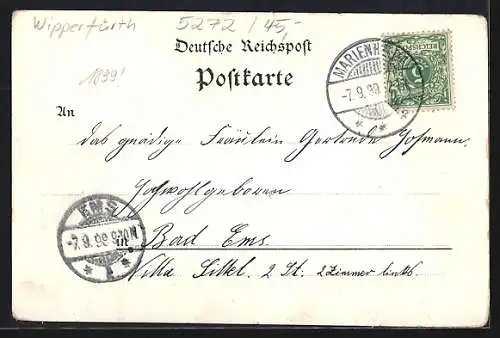 Wipperfürth 5272 / 45,-
1899!
Deutsche Reichspost
Postkarte
An
das gnädige Fräulein Gertrude Hofmann.
Hochwohlgeboren
in Bad Ems.
Villa Sittel. 2 St. 2 Zimmer links.
MARIENH
-7.9.99
REICHSPOST
5
EMS
-7.9.99